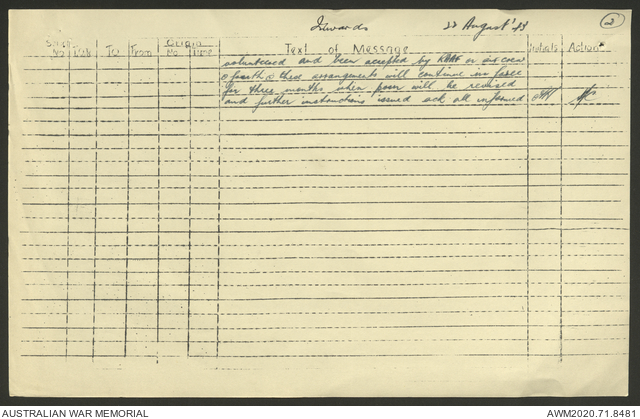 Inwards 22 August '43 2
Serial No Link To From Origin No Time Text of Message Initials Action
volunteered and been accepted by RAAF or air crew
o fourth o these arrangements will continue in force
for three months when posn will be reviewed
and further instructions issued ack all informed
AUSTRALIAN WAR MEMORIAL AWM2020.71.8481